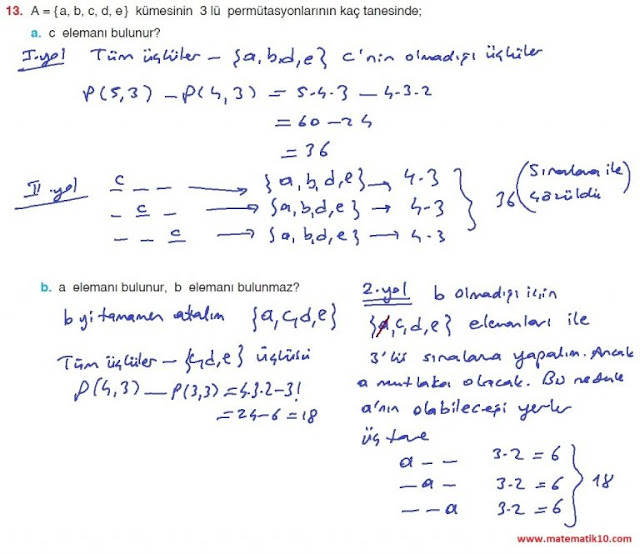 13. A = {a, b, c, d, e} kümesinin 3 lü permütasyonlarının kaç tanesinde;
a. c elemanı bulunur?
I.yol Tüm üçlüler – {a,b,d,e} c'nin olmadığı üçlüler
P(5,3) – P(4,3) = 5.4.3 – 4.3.2
= 60 – 24
= 36
II.yol c _ _ → {a,b,d,e} → 4.3
_ c _ → {a,b,d,e} → 4.3
_ _ c → {a,b,d,e} → 4.3
36 (Sıralama ile çözüldü)
b. a elemanı bulunur, b elemanı bulunmaz?
b yi tamamen atalım {a,c,d,e}
Tüm üçlüler – {c,d,e} üçlüsü
P(4,3) – P(3,3) = 4.3.2 – 3!
= 24 – 6 = 18
2.yol b olmadığı için
{a,c,d,e} elemanları ile
3'lü sıralama yapalım. Ancak
a mutlaka olacak. Bu nedenle
a'nın olabileceği yerler
üç tane
a – – 3.2 = 6
– a – 3.2 = 6
– – a 3.2 = 6
18
www.matematik10.com